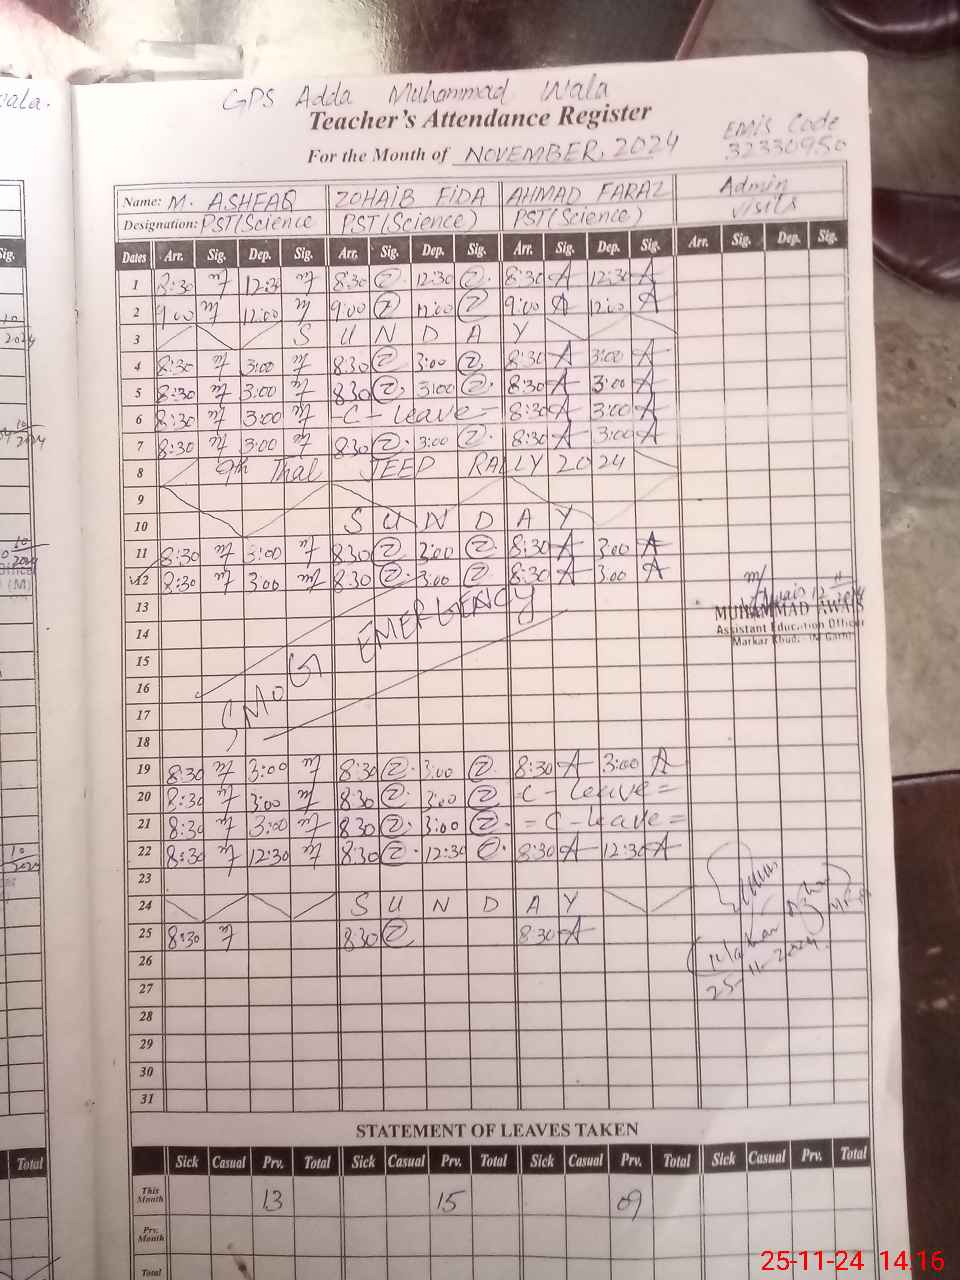 GPS Adda Muhammad Wala
Teacher's Attendance Register
For the Month of NOVEMBER, 2024
EMIS Code
32330950
Name: M. ASHFAQ ZOHAIB FIDA AHMAD FARAZ Admin
Designation: PST(Science PST(Science) PST(Science) Visits
Dates Arr. Sig. Dep. Sig. Arr. Sig. Dep. Sig. Arr. Sig. Dep. Sig. Arr. Sig. Dep. Sig.
1 8:30 12:30 8:30 12:30 8:30 A 12:30 A
2 9:00 12:00 9:00 12:00 9:00 A 12:00 A
3 S U N D A Y
4 8:30 3:00 8:30 3:00 8:30 A 3:00 A
5 8:30 3:00 8:30 3:00 8:30 A 3:00 A
6 8:30 3:00 -C- Leave= 8:30 A 3:00 A
7 8:30 3:00 8:30 3:00 8:30 A 3:00 A
8 9th Thal JEEP RALLY 2024
9
10 S U N D A Y
11 8:30 3:00 8:30 3:00 8:30 A 3:00 A
12 8:30 3:00 8:30 3:00 8:30 A 3:00 A
MUHAMMAD AWAIS
Assistant Education Officer
13
14
15
SMOG EMERGENCY
16
17
18
19 8:30 3:00 8:30 3:00 8:30 A 3:00 A
20 8:30 3:00 8:30 3:00 -C- Leave=
21 8:30 3:00 8:30 3:00 =C-Leave=
22 8:30 12:30 8:30 12:30 8:30 A 12:30 A
23
24 S U N D A Y
25 8:30 8:30 8:30 A
25-11-2024
26
27
28
29
30
31
STATEMENT OF LEAVES TAKEN
Sick Casual Prv. Total Sick Casual Prv. Total Sick Casual Prv. Total Sick Casual Prv. Total
This Month 13 15 09
Prv. Month
Total
25-11-24 14:16